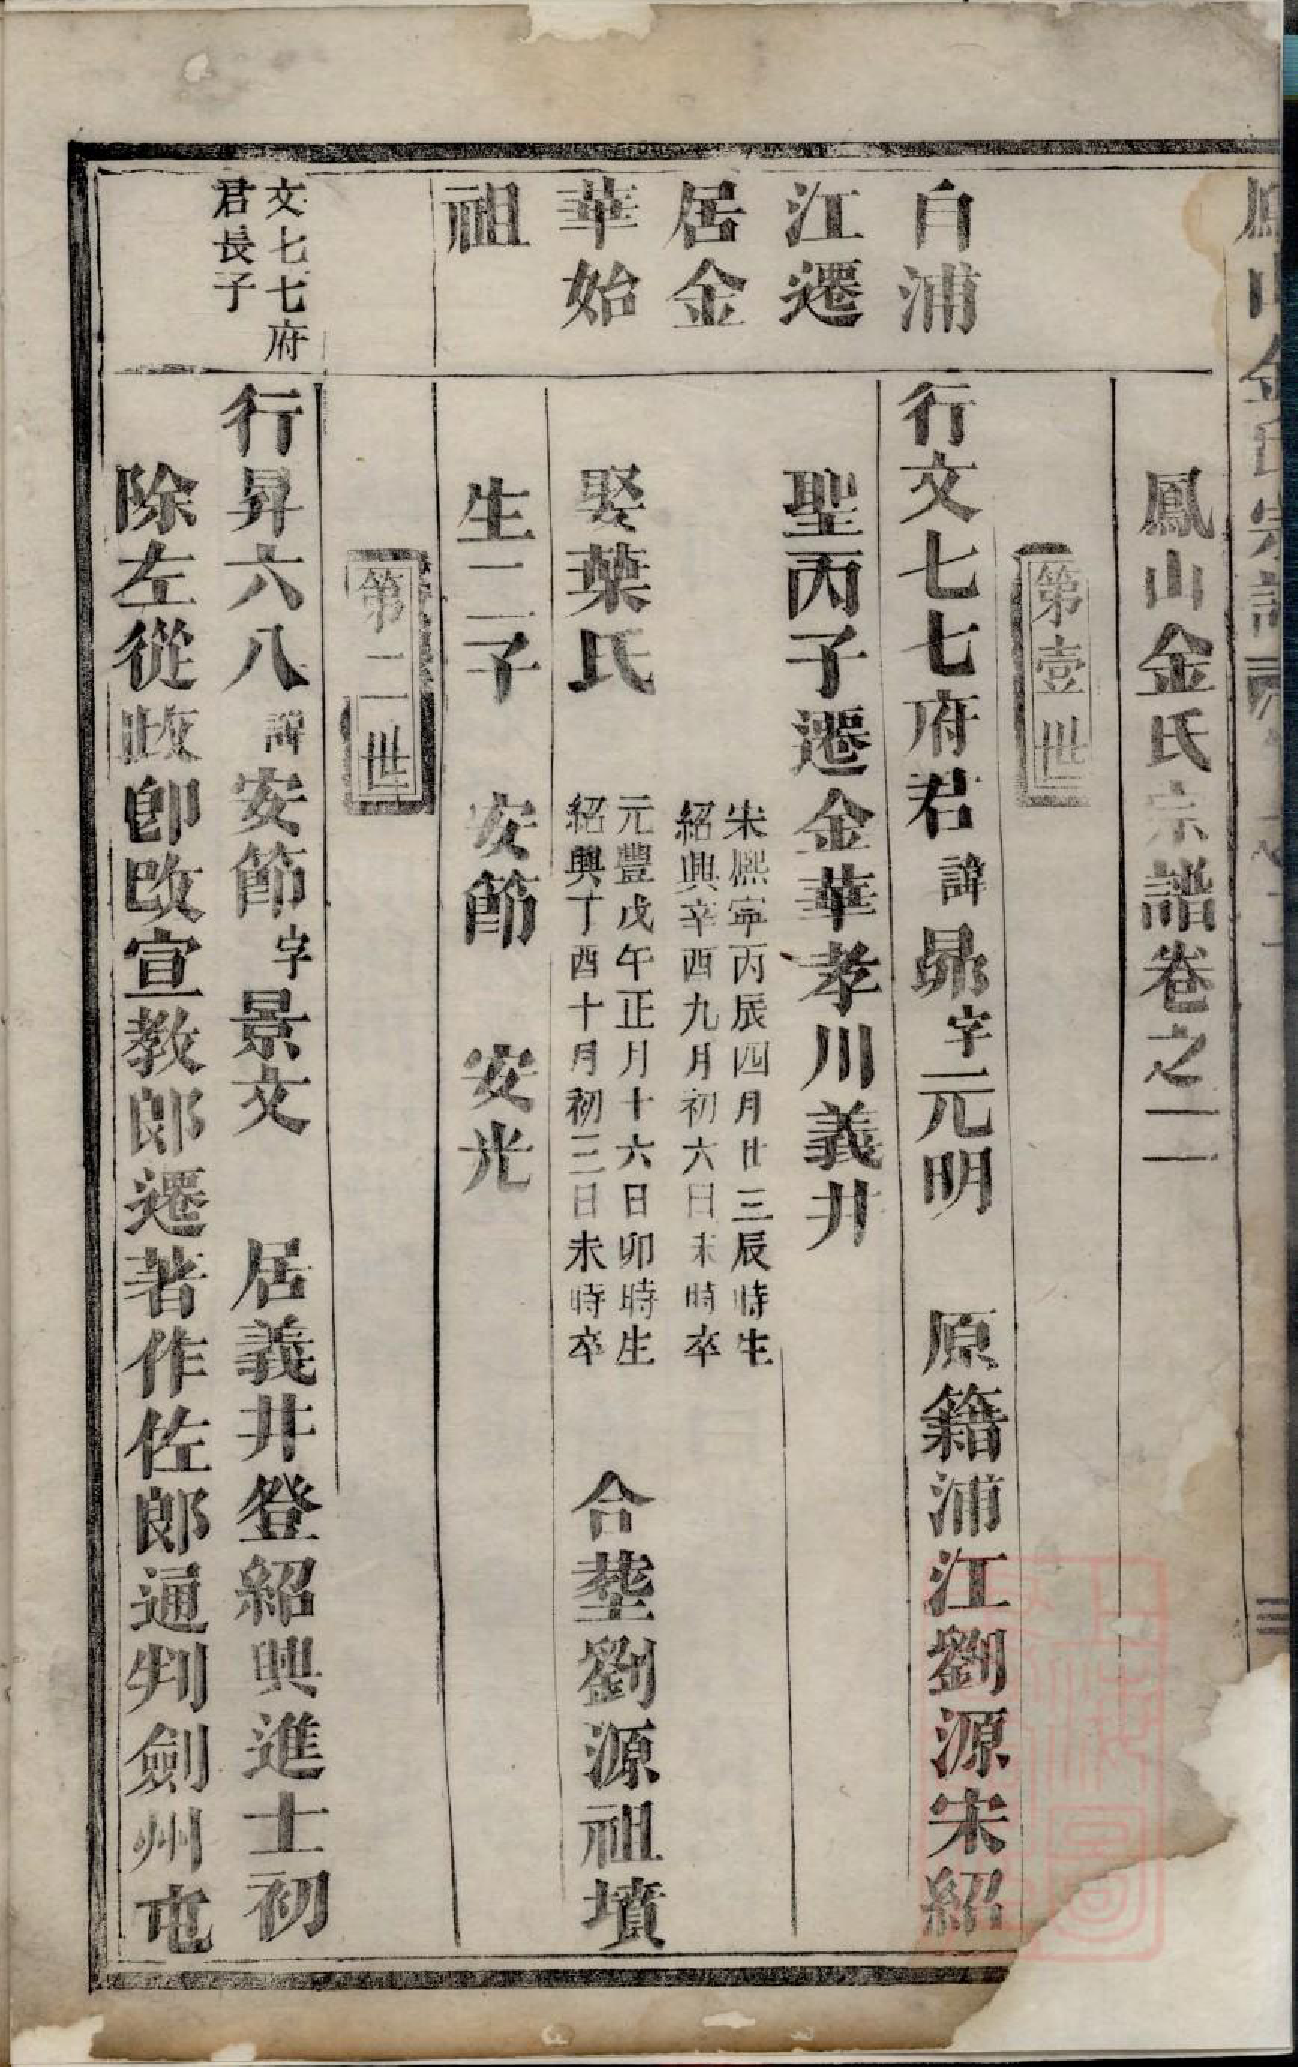 鳳山金氏宗譜卷之二
第壹世
自浦
江遷
居金
華始
祖
行文七七府君諱昴字元明 原籍浦江劉源宋紹
聖丙子遷金華孝川義井
宋熈寧丙辰四月廿三辰時生
紹興辛酉九月初六日未時卒
娶葉氏
元豐戊午正月十六日卯時生
紹興丁酉十月初三日未時卒
合塟劉源祖墳
生二子 安節 安光
第二世
文七七府
君長子
行昇六八諱安節字景文 居義井登紹興進士初
除左從政郎改宣教郎遷著作佐郎通判劍州屯